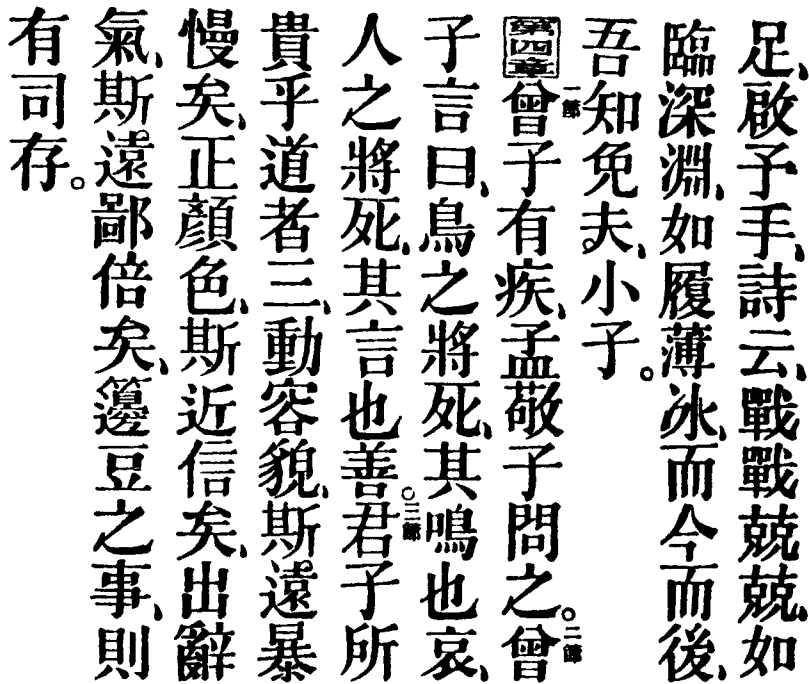 足、啟予手、詩云、戰戰兢兢、如
臨深淵、如履薄冰、而今而後、
吾知免夫、小子。
第四章 一節 曾子有疾、孟敬子問之。二節 曾
子言曰、鳥之將死、其鳴也哀、
人之將死、其言也善。三節 君子所
貴乎道者三、動容貌、斯遠暴
慢矣、正顏色、斯近信矣、出辭
氣、斯遠鄙倍矣、籩豆之事、則
有司存。